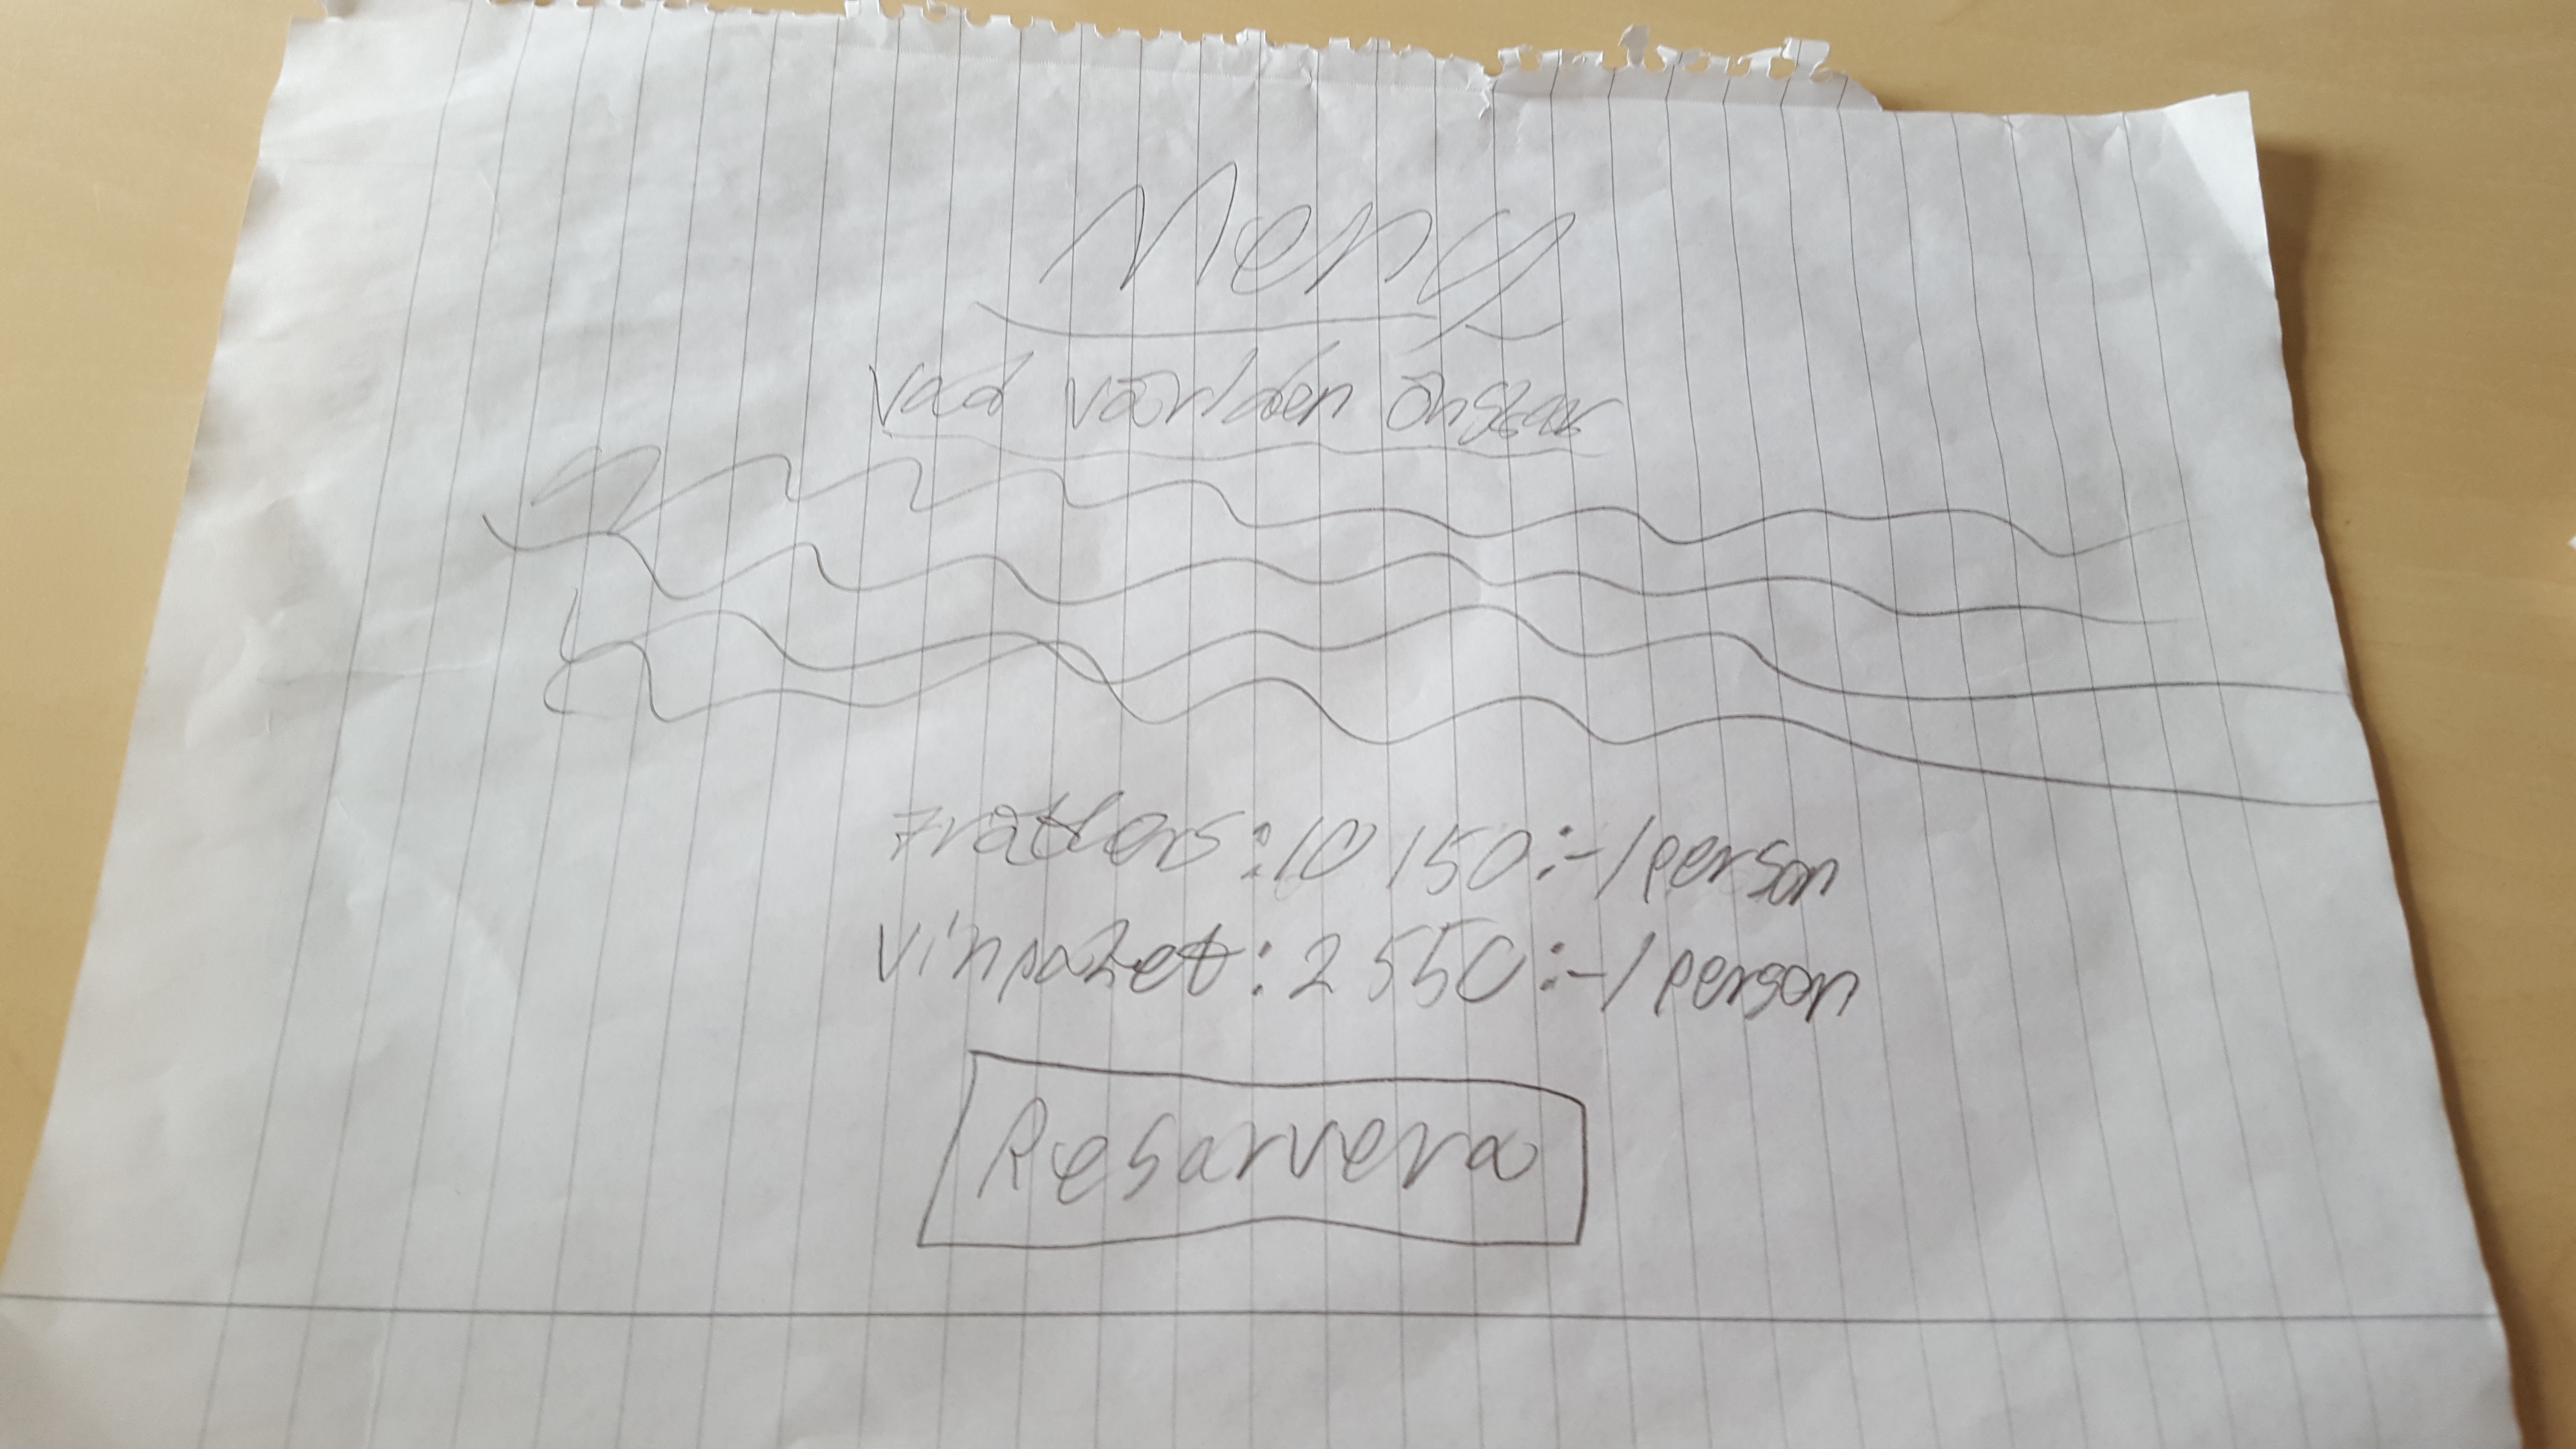 Meny
Vad världen önskar
7 rätters: 10 150:-/person
Vinpaket: 2 550:-/person
Resarvera